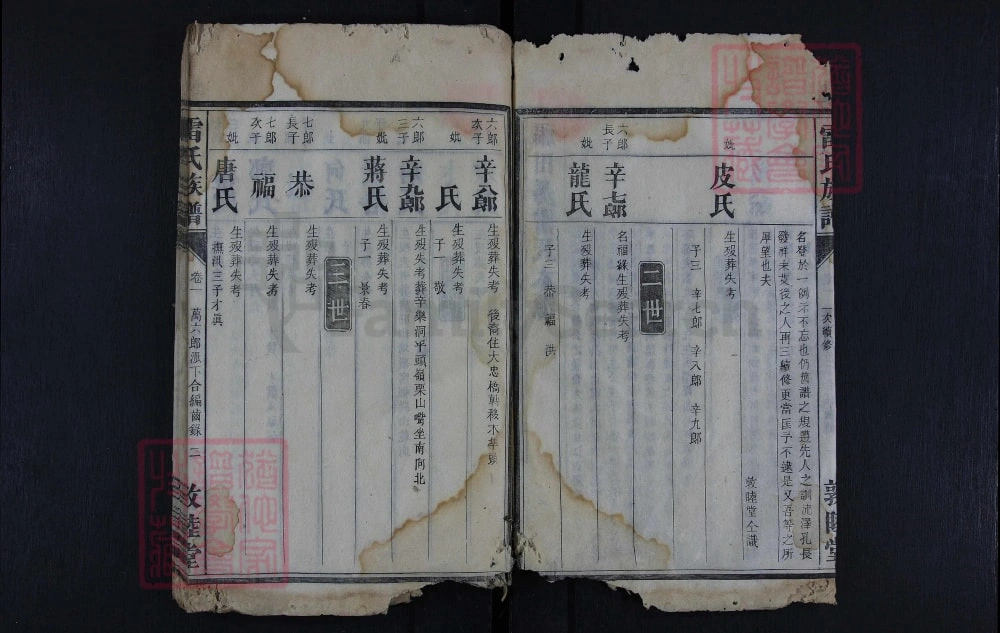 雷氏族譜
敦睦堂
名登於一例示不忘也仍舊譜之規遵先人之訓
發祥未艾後之人再三續修更當匡予不逮是又吾等之所
厚望也夫
敦睦堂仝識
妣
皮氏
生歿葬失考
子三 辛七郎 辛八郎 辛九郎
二世
六郎長子
辛七郎
名福緣生歿葬失考
妣
龍氏
生歿葬失考
子三 恭 福 洪
六郎次子
辛八郎
生歿葬失考 後裔住大忠橋
妣
氏
生歿葬失考
子一 敬
六郎三子
辛九郎
生歿失考葬辛樂洞乎頭嶺栗山嘴坐南向北
妣
蔣氏
生歿葬失考
子一 景春
三世
七郎長子
恭
生歿葬失考
七郎次子
福
生歿葬失考
妣
唐氏
生歿葬失考
撫洪三子才眞
雷氏族譜
卷一
萬六郎派下合編齒錄 二
敦睦堂